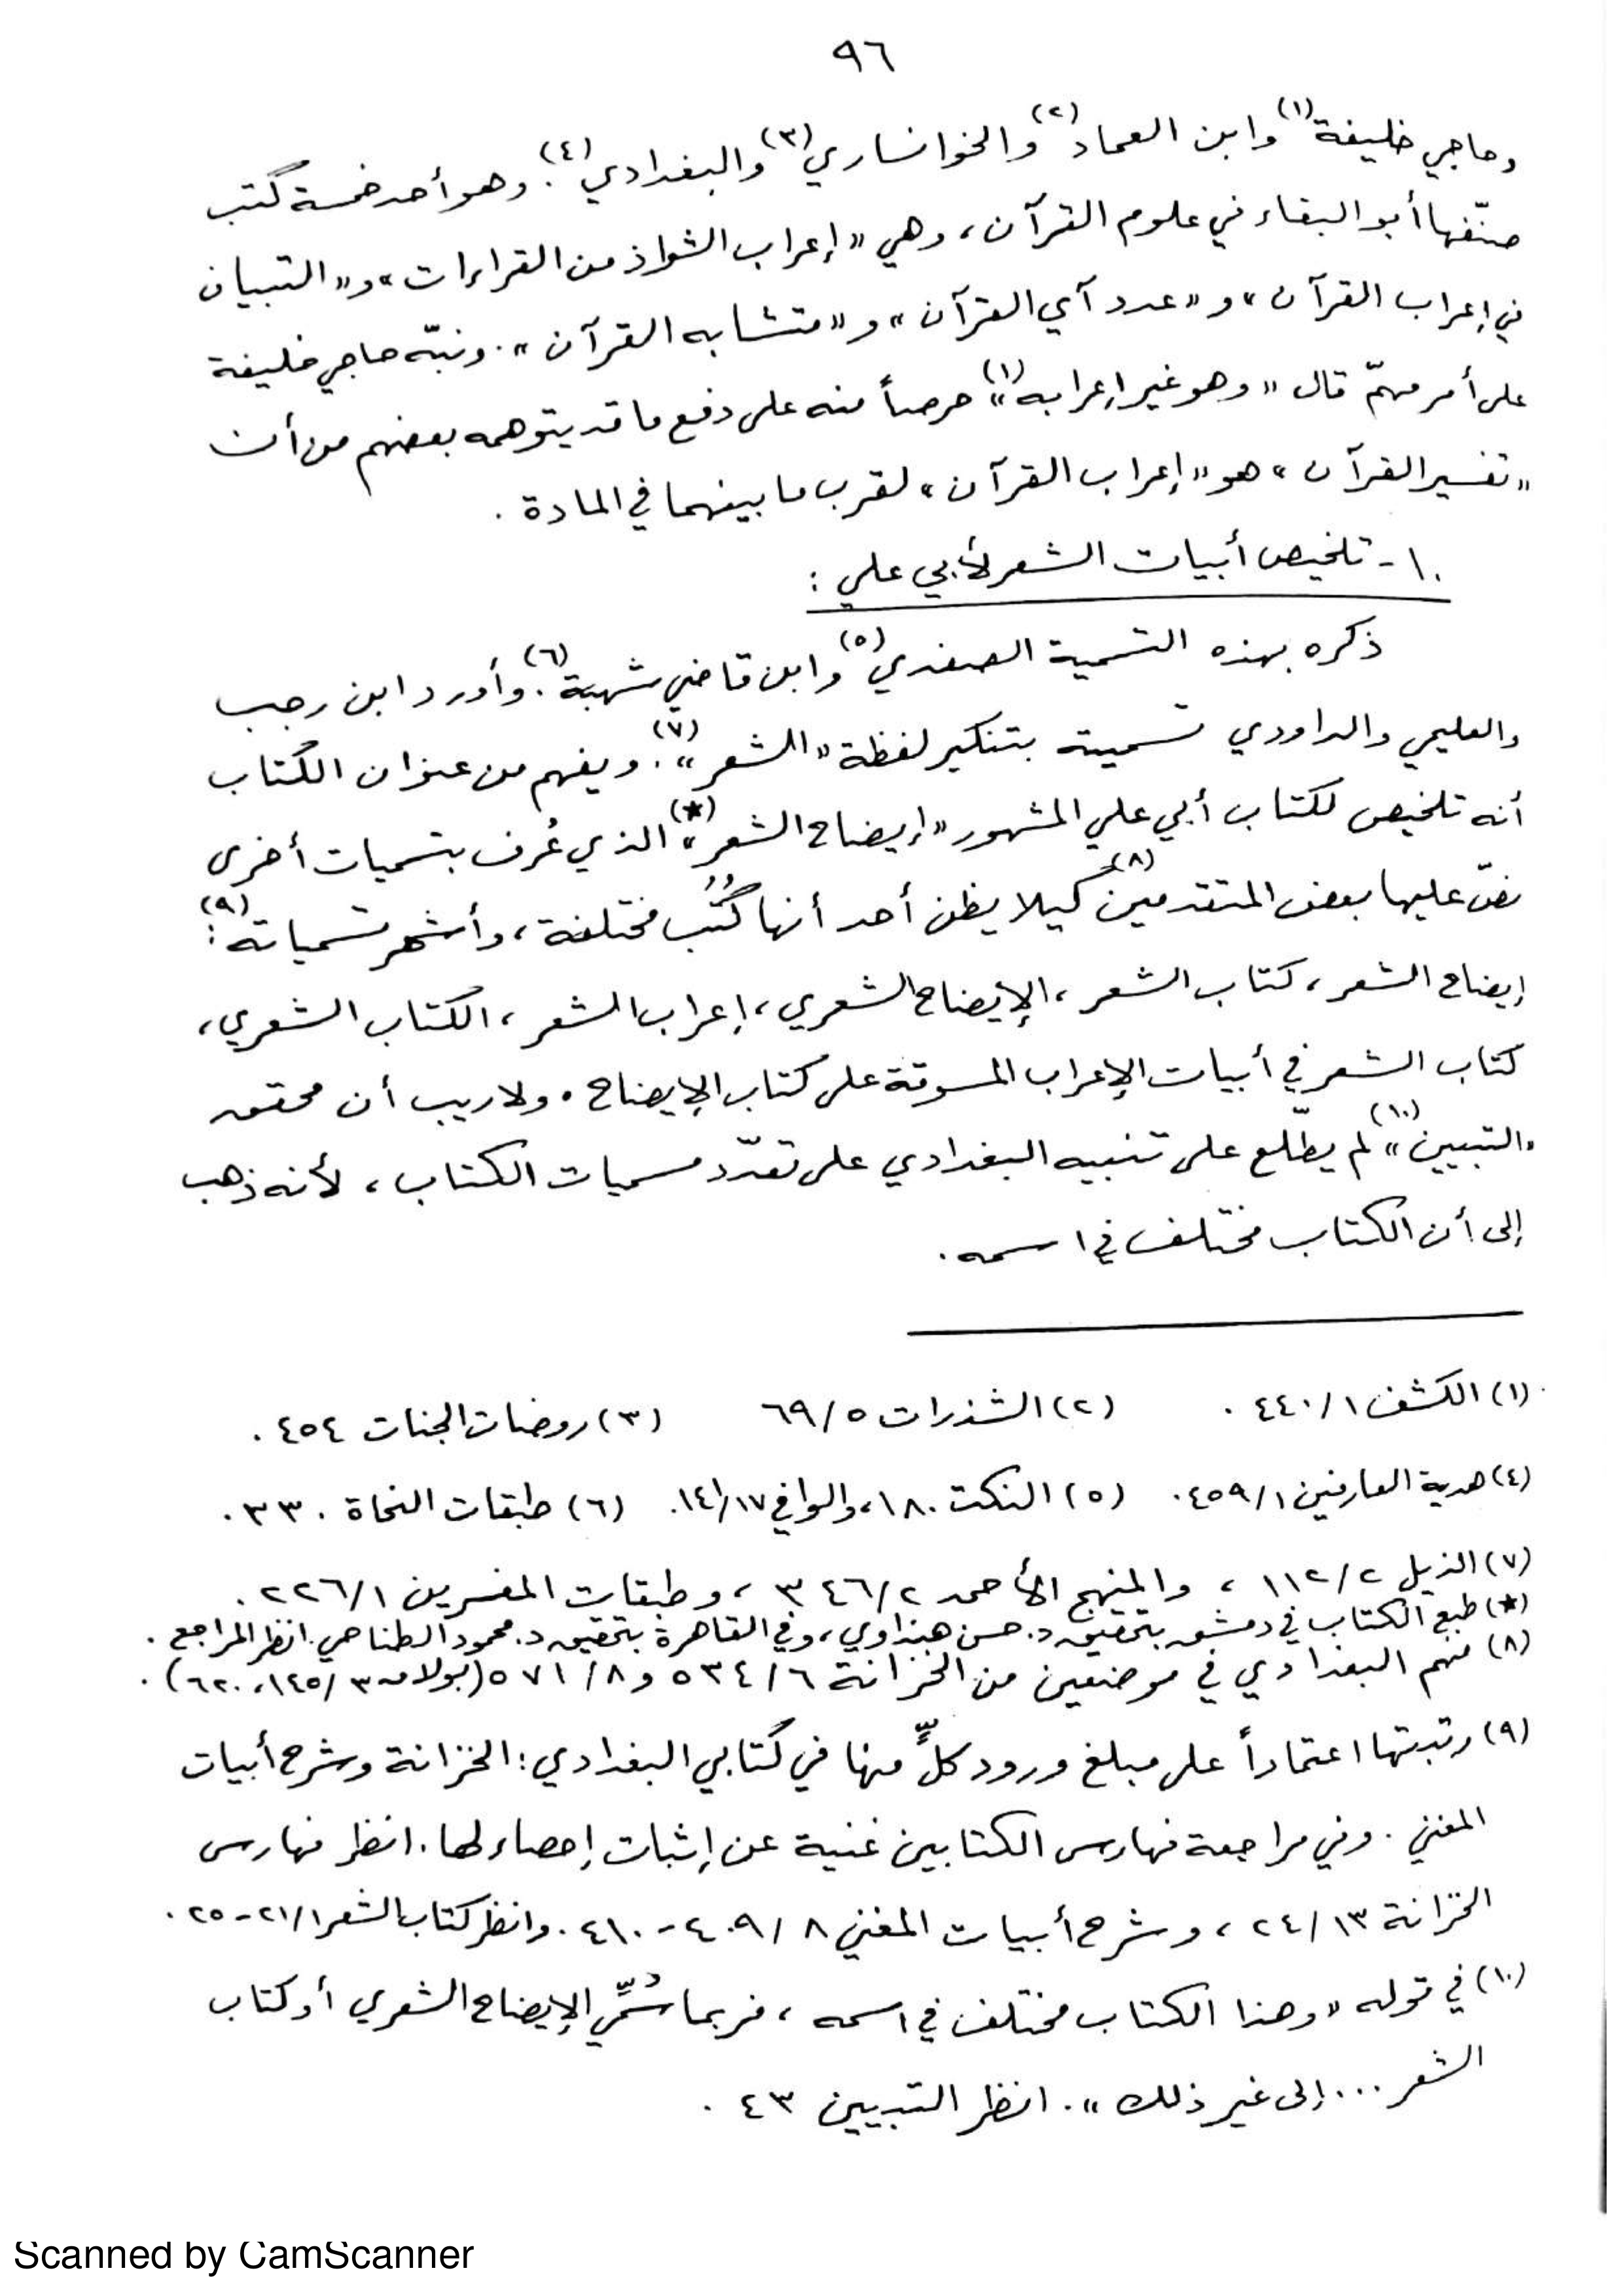 ٩٦
وحاجي خليفة(١) وابن العماد(٢) والخوانساري(٣) والبغدادي(٤). وهو أحد خمسة كتب
صنّفها أبو البقاء في علوم القرآن، وهي «إعراب الشواذ من القراءات» و«التبيان
في إعراب القرآن» و«عدد آي القرآن» و«متشابه القرآن». ونبّه حاجي خليفة
على أمر مهمّ قال «وهو غير إعرابه(١)» حرصاً منه على دفع ما قد يتوهمه بعضهم من أن
«تفسير القرآن» هو «إعراب القرآن» لقرب ما بينهما في المادة.
١٠- تلخيص أبيات الشعر لأبي علي:
ذكره بهذه التسمية الصفدي(٥) وابن قاضي شهبة(٦). وأورد ابن رجب
والعليمي والداودي تسميته بتنكير لفظة «الشعر»(٧). ويفهم من عنوان الكتاب
أنه تلخيص لكتاب أبي علي المشهور «إيضاح الشعر»(*) الذي عُرف بتسميات أخرى
نصّ عليها بعض المتقدمين(٨) كيلا يظن أحد أنها كُتُب مختلفة، وأشهر تسمياته(٩):
إيضاح الشعر، كتاب الشعر، الإيضاح الشعري، إعراب الشعر، الكتاب الشعري،
كتاب الشعر في أبيات الإعراب المسوقة على كتاب الإيضاح. ولا ريب أن محقق
«التبيين(١٠)» لم يطّلع على تنبيه البغدادي على تعدّد مسميات الكتاب، لأنه ذهب
إلى أن الكتاب مختلف في اسمه.
(١) الكشف ٤٤٠/١. (٢) الشذرات ٦٩/٥ (٣) روضات الجنات ٤٥٤.
(٤) هدية العارفين ٤٥٩/١. (٥) النكت ١٨٠، والوافي ١٤١/١٧. (٦) طبقات النحاة ٣٣٠.
(٧) الذيل ١١٢/٢، والمنهج الأحمد ٣٤٦/٢، وطبقات المفسرين ٢٢٦/١.
(*) طبع الكتاب في دمشق بتحقيق د. حسن هنداوي، وفي القاهرة بتحقيق د. محمود الطناحي. انظر المراجع.
(٨) منهم البغدادي في موضعين من الخزانة ٥٣٤/٦ و٥٧١/٨ (بولاق ١٤٥/٣، ٦٢٠).
(٩) رتبتها اعتماداً على مبلغ ورود كلٍّ منها في كتابي البغدادي: الخزانة وشرح أبيات
المغني. وفي مراجعة فهارس الكتابين غنية عن إثبات إحصاء لها. انظر فهارس
الخزانة ٢٤/١٣، وشرح أبيات المغني ٤٠٩/٨-٤١٠. وانظر كتاب الشعر ٢١/١-٢٥.
(١٠) في قوله «وهذا الكتاب مختلف في اسمه، فربما سُمِّي الإيضاح الشعري أو كتاب
الشعر... إلى غير ذلك». انظر التبيين ٤٣.
Scanned by CamScanner